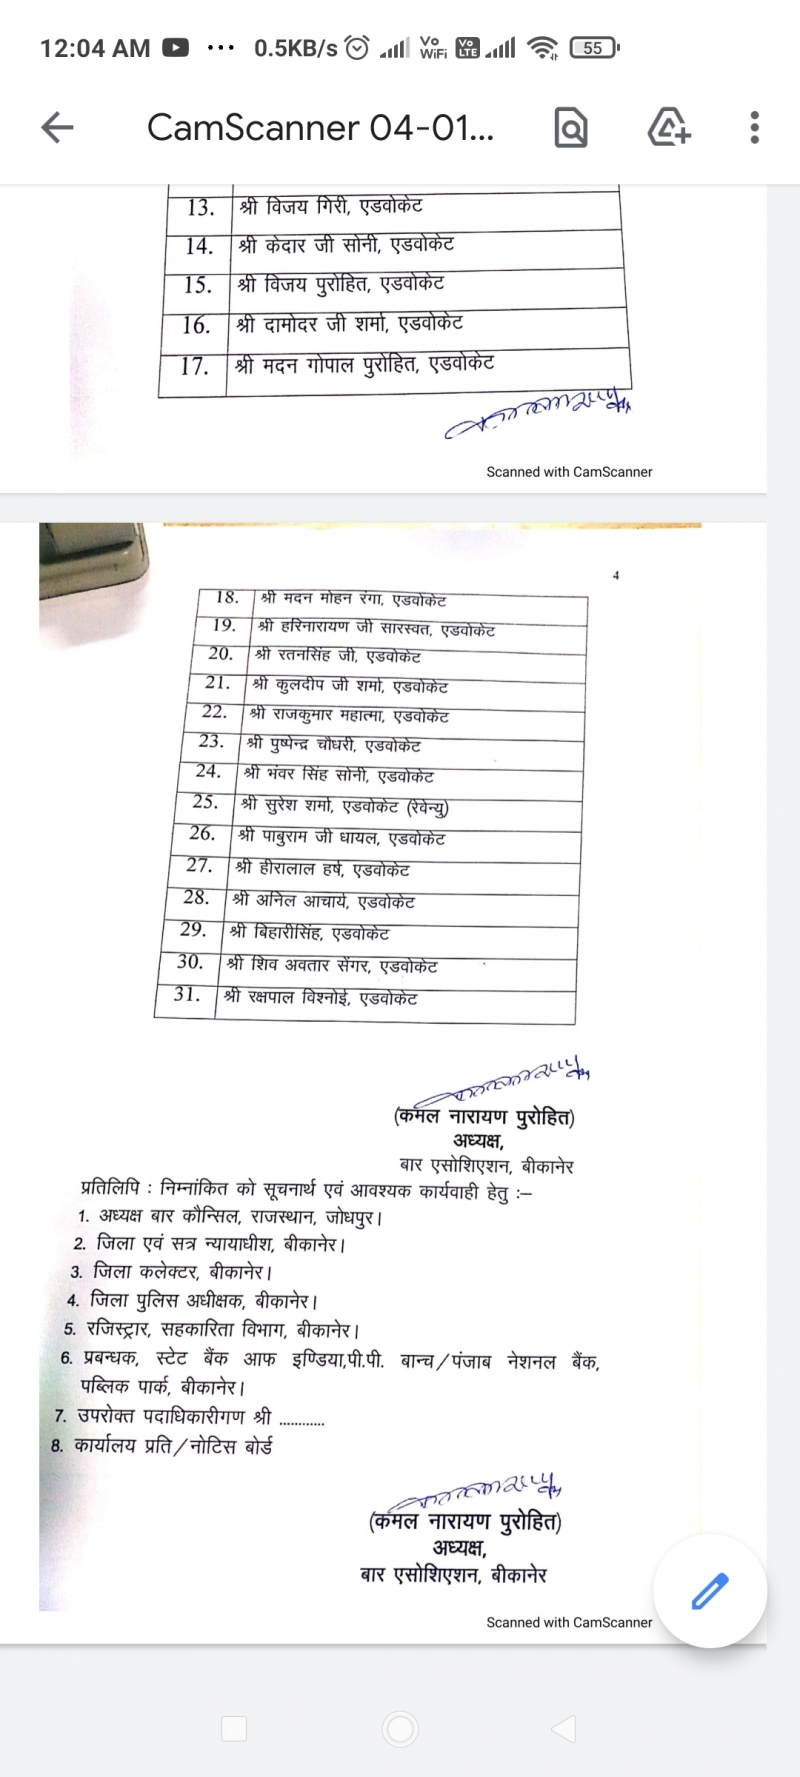 12:04 AM ... 0.5KB/s Vo WiFi Vo LTE 55
CamScanner 04-01...
13. श्री विजय गिरी, एडवोकेट
14. श्री केदार जी सोनी, एडवोकेट
15. श्री विजय पुरोहित, एडवोकेट
16. श्री दामोदर जी शर्मा, एडवोकेट
17. श्री मदन गोपाल पुरोहित, एडवोकेट
Scanned with CamScanner
4
18. श्री मदन मोहन रंगा, एडवोकेट
19. श्री हरिनारायण जी सारस्वत, एडवोकेट
20. श्री रतनसिंह जी, एडवोकेट
21. श्री कुलदीप जी शर्मा, एडवोकेट
22. श्री राजकुमार महात्मा, एडवोकेट
23. श्री पुष्पेन्द्र चौधरी, एडवोकेट
24. श्री भंवर सिंह सोनी, एडवोकेट
25. श्री सुरेश शर्मा, एडवोकेट (रेवेन्यु)
26. श्री पाबुराम जी धायल, एडवोकेट
27. श्री हीरालाल हर्ष, एडवोकेट
28. श्री अनिल आचार्य, एडवोकेट
29. श्री बिहारीसिंह, एडवोकेट
30. श्री शिव अवतार सेंगर, एडवोकेट
31. श्री रक्षपाल विश्नोई, एडवोकेट
(कमल नारायण पुरोहित)
अध्यक्ष,
बार एसोशिएशन, बीकानेर
प्रतिलिपि : निम्नांकित को सूचनार्थ एवं आवश्यक कार्यवाही हेतु :–
1. अध्यक्ष बार कौन्सिल, राजस्थान, जोधपुर।
2. जिला एवं सत्र न्यायाधीश, बीकानेर।
3. जिला कलेक्टर, बीकानेर।
4. जिला पुलिस अधीक्षक, बीकानेर।
5. रजिस्ट्रार, सहकारिता विभाग, बीकानेर।
6. प्रबन्धक, स्टेट बैंक आफ इण्डिया,पी.पी. बान्च/पंजाब नेशनल बैंक,
पब्लिक पार्क, बीकानेर।
7. उपरोक्त पदाधिकारीगण श्री ............
8. कार्यालय प्रति/नोटिस बोर्ड
(कमल नारायण पुरोहित)
अध्यक्ष,
बार एसोशिएशन, बीकानेर
Scanned with CamScanner